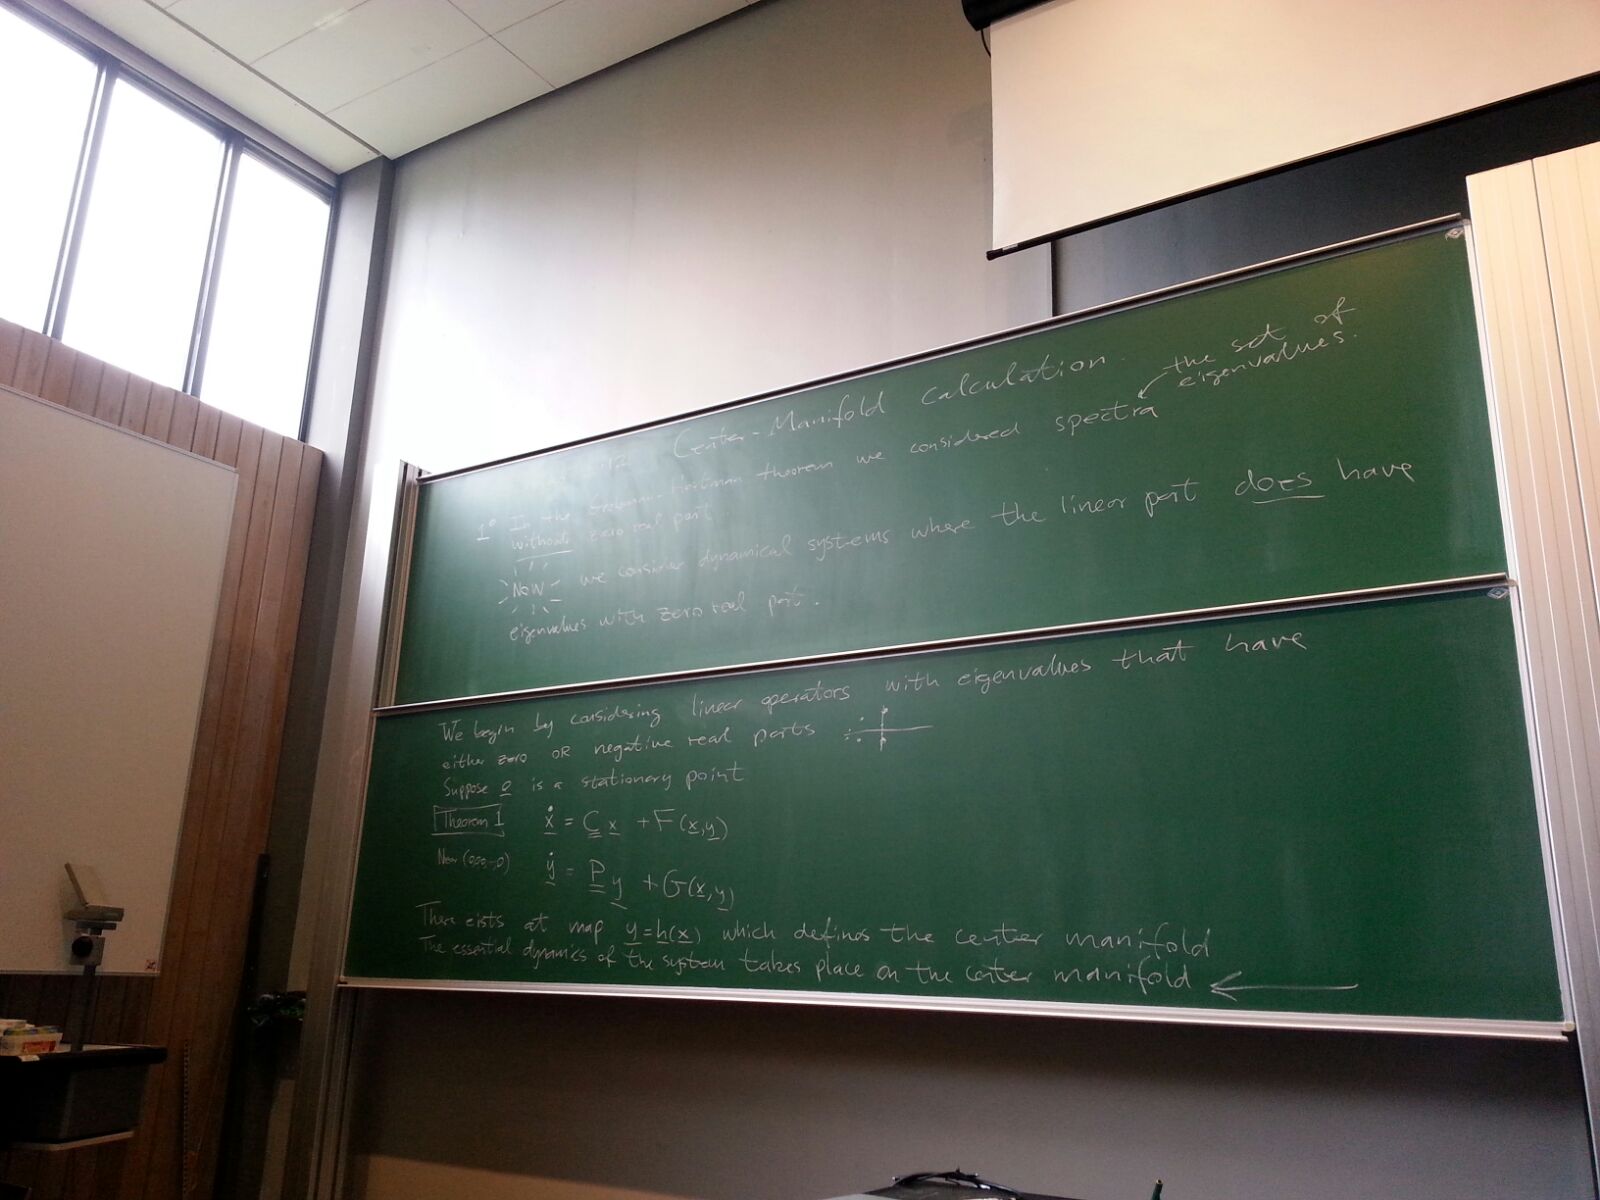 Center-Manifold Calculation.
the set of
eigenvalues.
1° In the Grobman-Hartman theorem we considered spectra
without zero real part.
NOW we consider dynamical systems where the linear part does have
eigenvalues with zero real part.
We begin by considering linear operators with eigenvalues that have
either zero OR negative real parts
Suppose 0 is a stationary point
Theorem 1 ẋ = C x + F(x,y)
Near ẏ = P y + G(x,y)
There eists at map y=h(x) which defines the center manifold
The essential dynamics of the system takes place on the center manifold